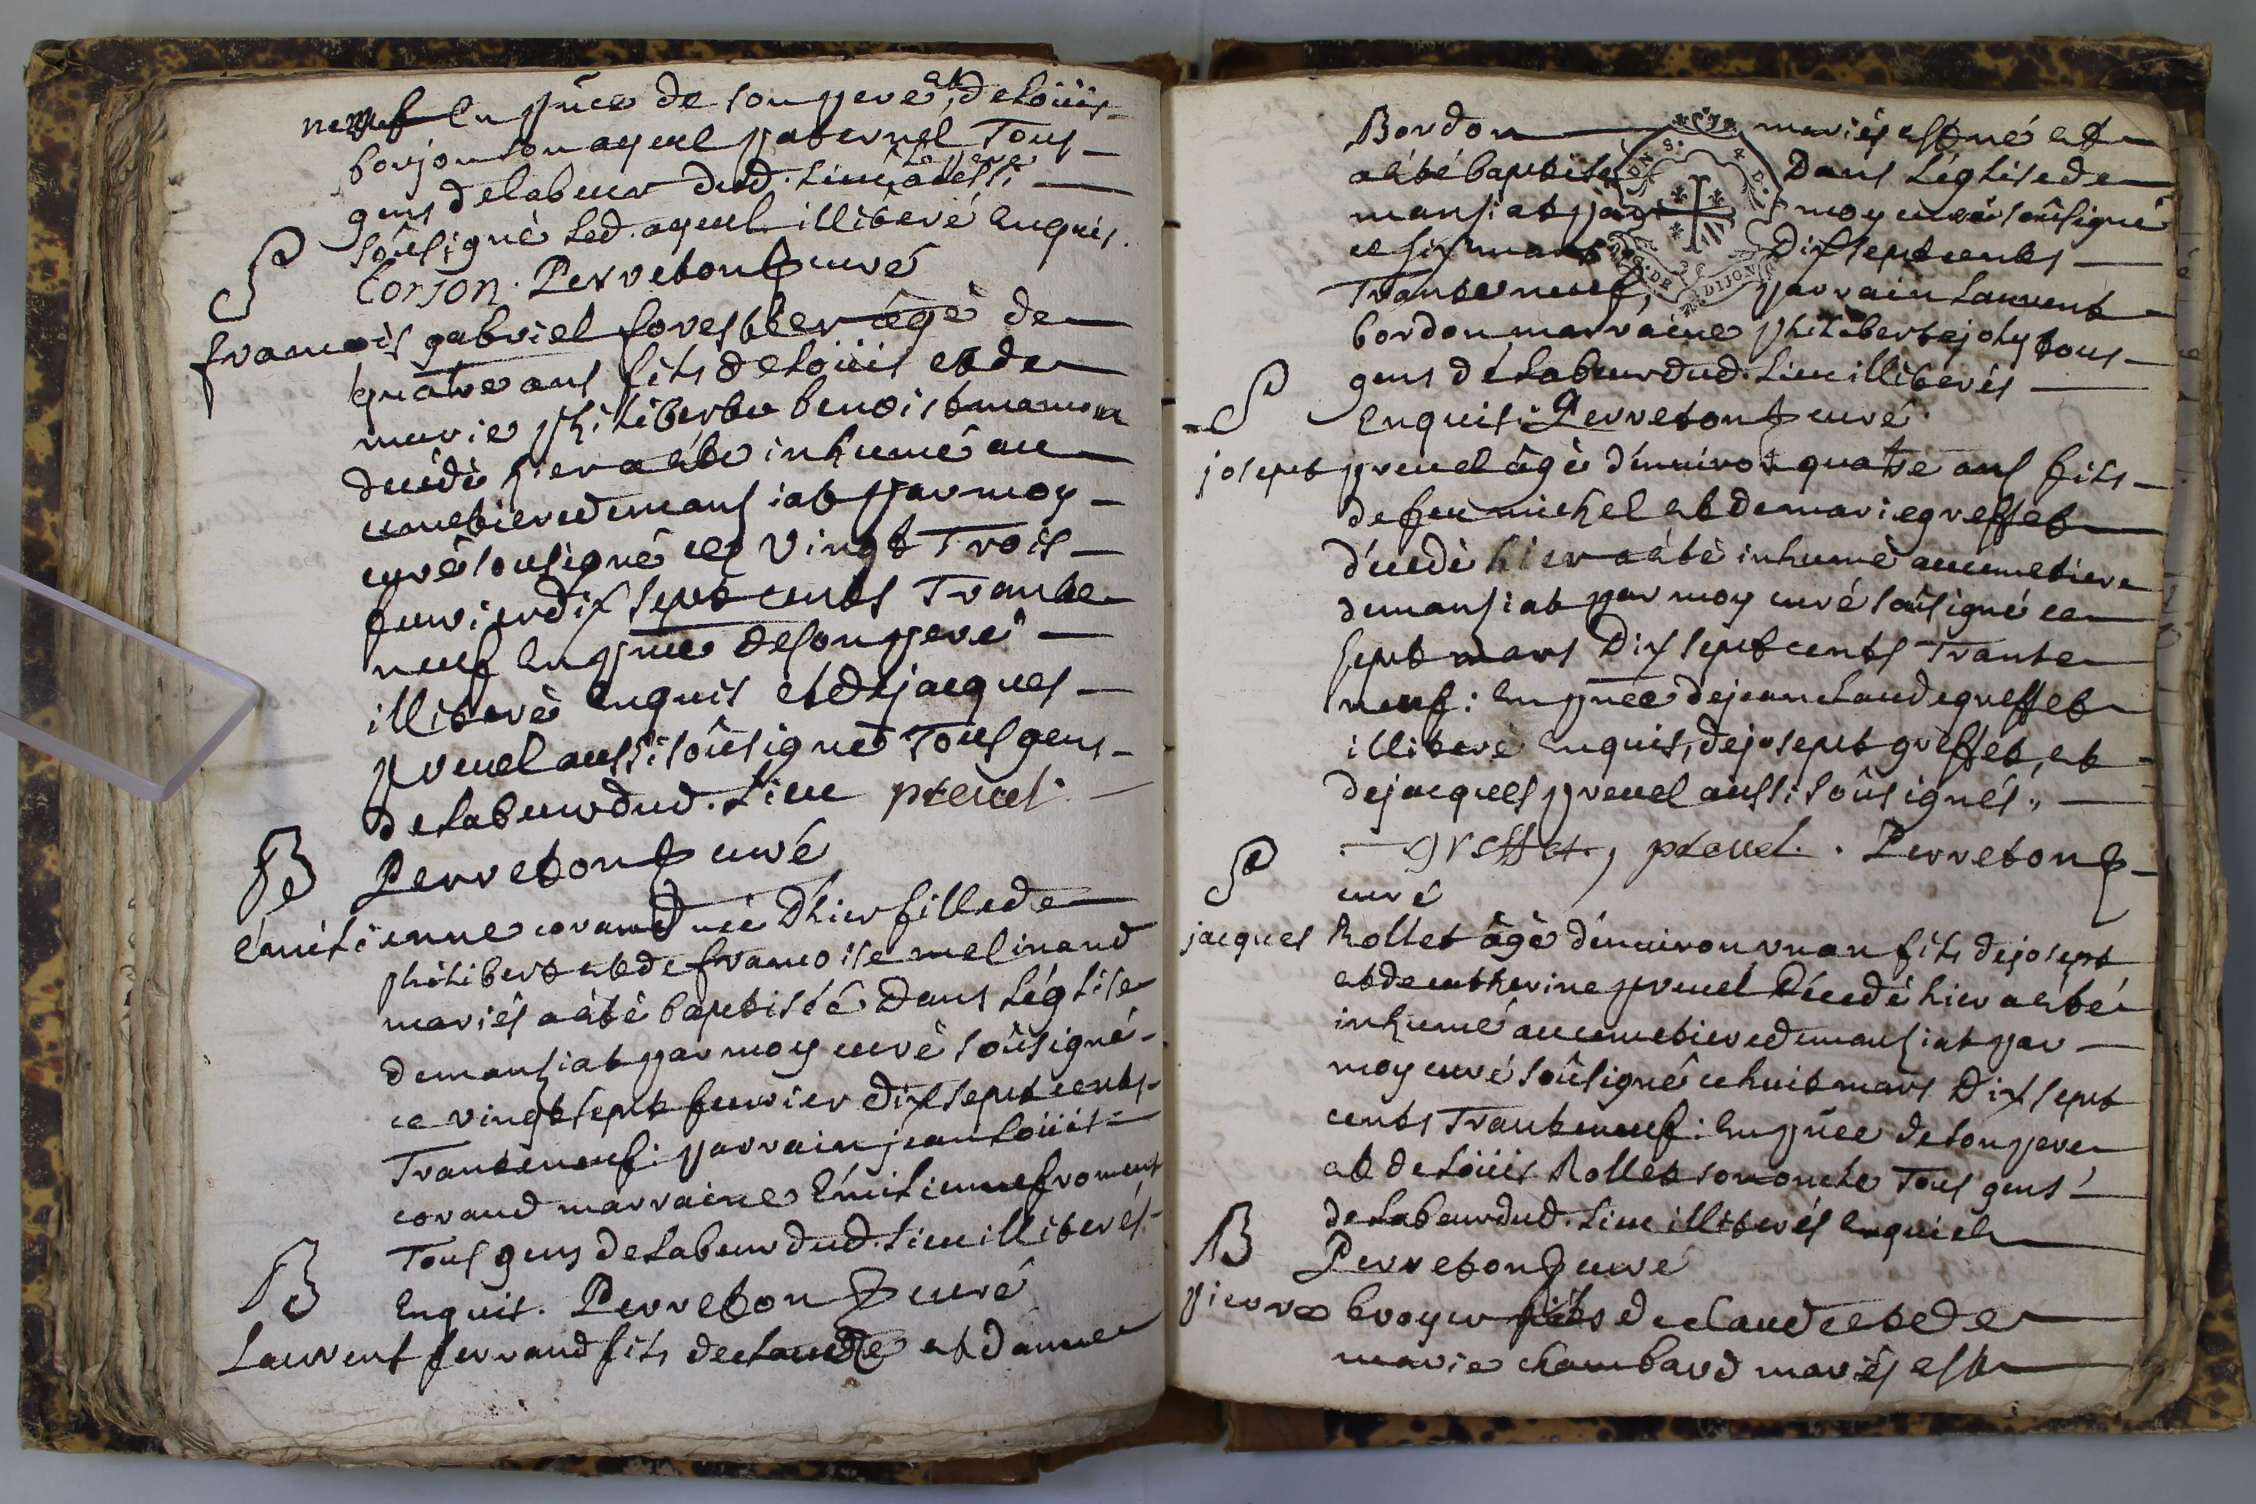 neuf En p̃nce de son pere, et de Loüis
borjon son ayeul paternel Tous
gens de labeur dud. Lieu, Le pere aussi
soûsigné Led. ayeul illiteré Enquis.
Borjon. Perreton curé
S
francois gabriel forestier âgè de
quatre ans fils de Loüis et de
marie philiberte benoist
decédé hier a été inhumé au
cimetiere de mansiat par moy
curé soûsigné ce Vingt Trois
fevrier dix sept cents Trante
neuf En p̃nce de son pere
illiteré Enquis et de jacques
preuel aussi soûsigné Tous gens
de Labeur dud. Lieu preuel
Perreton curé
B
Emilienne corand née D'hier fille de
philibert et de francoise melinand
mariés a été baptisée Dans Léglise
de mansiat par moy curé soûsigné
ce vingt sept fevrier dix sept cents
Tranteneuf: parrain jean Loüis
corand marraine Emilienne froment
Tous gens de Labeur dud. Lieu illiterés
Enquis. Perreton curé
B
Laurent ferrand fils de claude et d'anne
Bordon mariés est né et
a été baptisé Dans Léglise de
mansiat par moy curé soûsigné
ce six mars Dix sept cents
Tranteneuf, parrain Laurent
bordon marraine philiberte joly tous
gens de Labeur dud. Lieu illiterés
Enquis. Perreton curé.
S
josept preuel âgè d'enuiron quatre ans fils
de feu michel et de marie greffet
décedè hier a été inhumé au cimetiere
de mansiat par moy curé soûsigné ce
sept mars Dix sept cents Trante
neuf: En p̃nce de jean claude greffet
illiteré Enquis, de josept greffet, et
de jacques preuel aussi soûsignés.
greffet, preuel. Perreton
curé
S
jacques Rollet âgè d'enuiron un an fils de josept
et de catherine preuel Décedé hier a été
inhumé au cimetiere de mansiat par
moy curé soûsigné ce huit mars Dix sept
cents Tranteneuf: En p̃nce de son pere
et de Loüis Rollet son oncle Tous gens
de Labeur dud. Lieu illiterés Enquis
Perreton curé
B
pierre broyer fils de claude et de
marie chambard mariés est